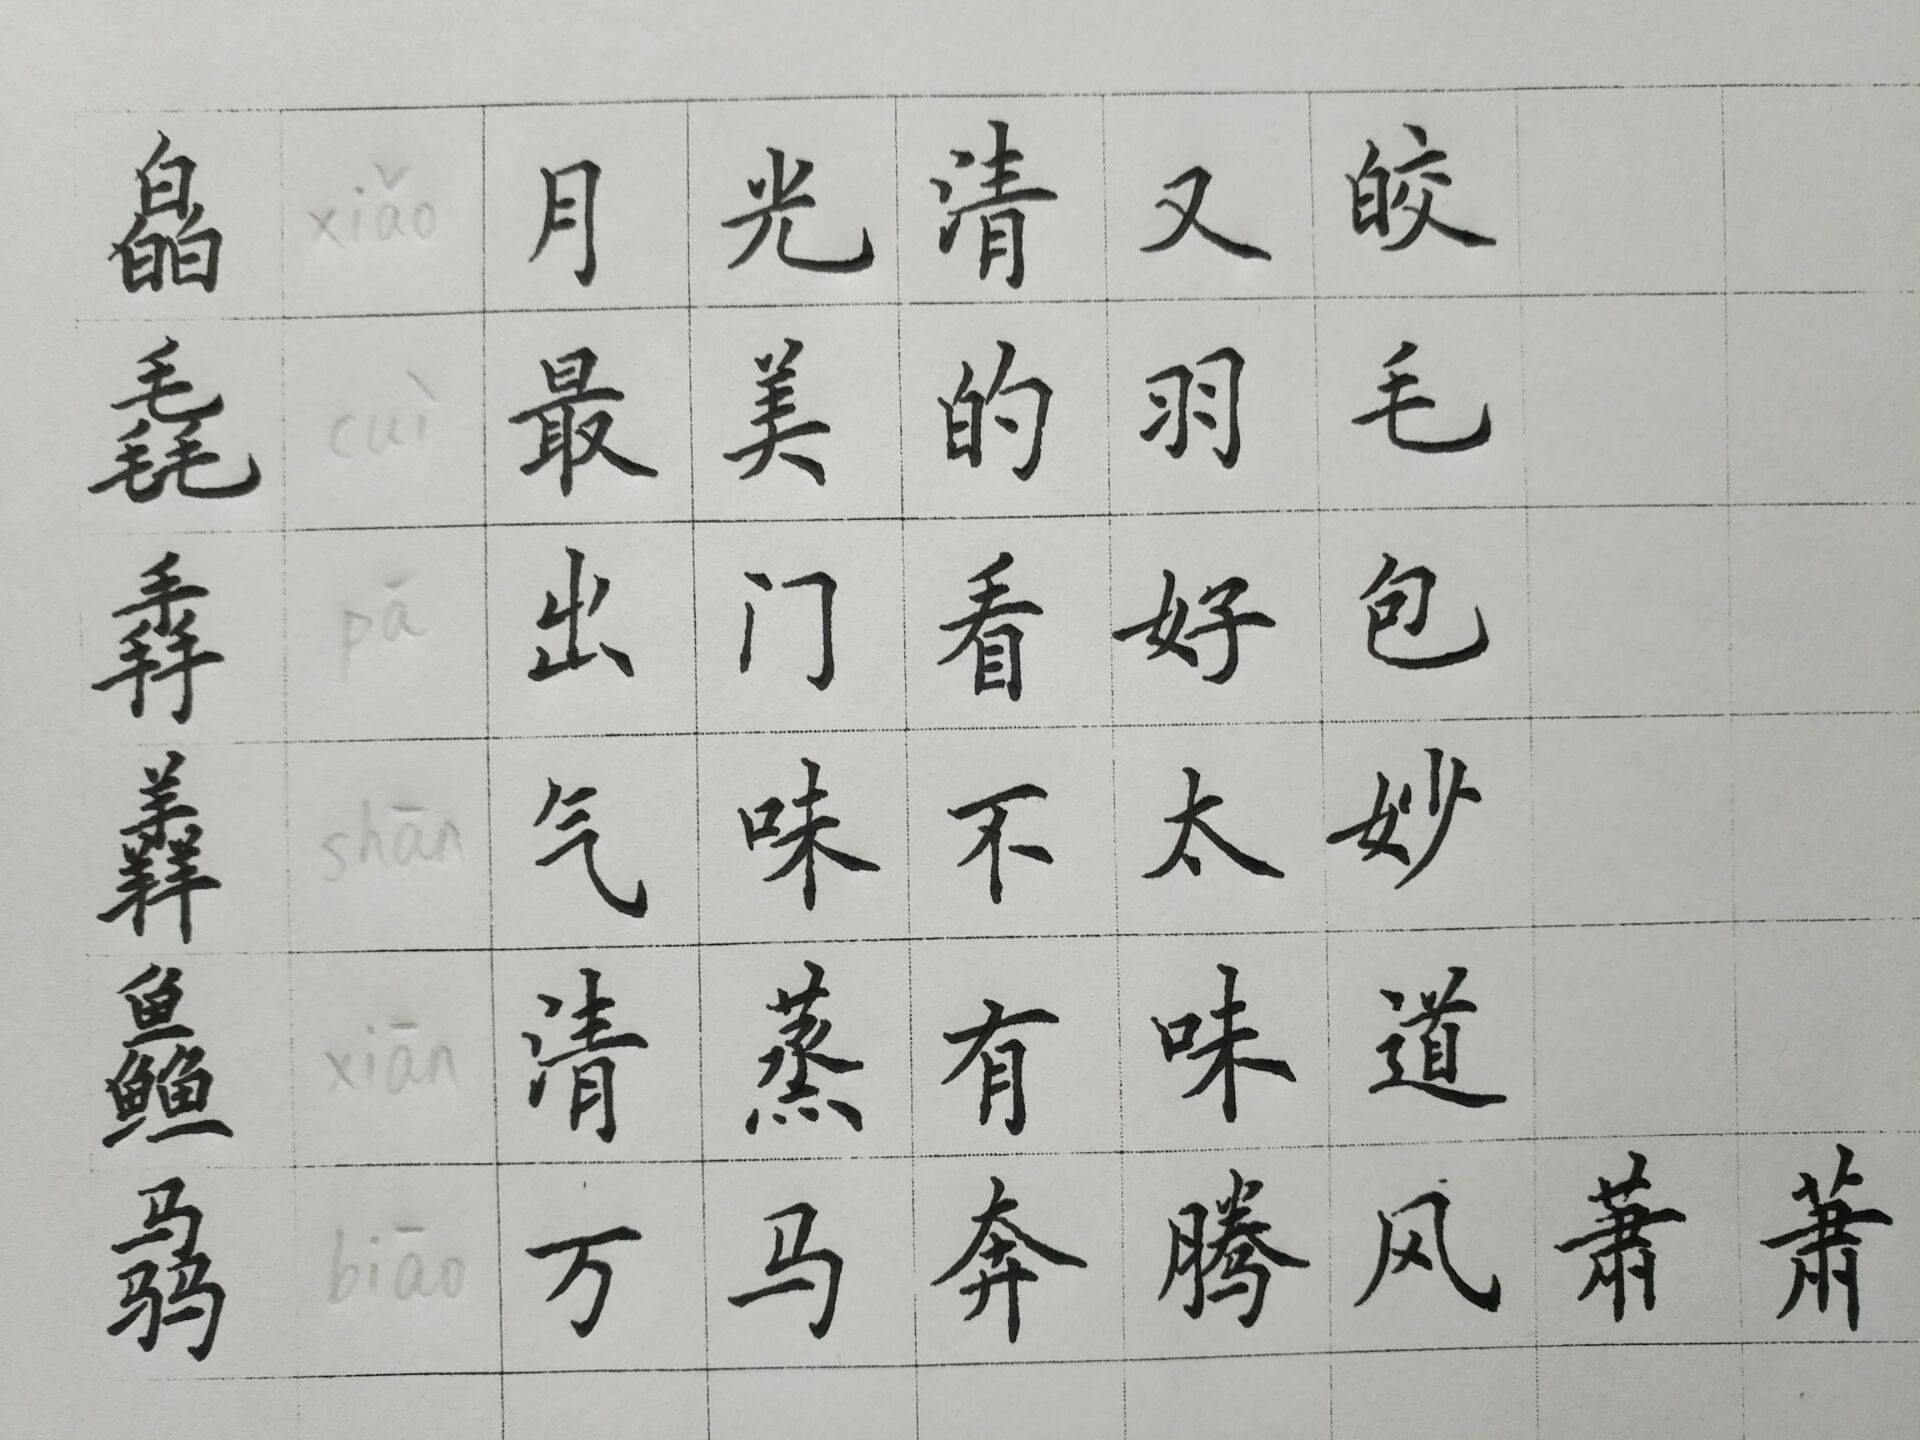 皛 xiǎo 月光清又皎
毳 cuì 最美的羽毛
掱 pá 出门看好包
羴 shān 气味不太妙
鱻 xiān 清蒸有味道
骉 biāo 万马奔腾风萧萧